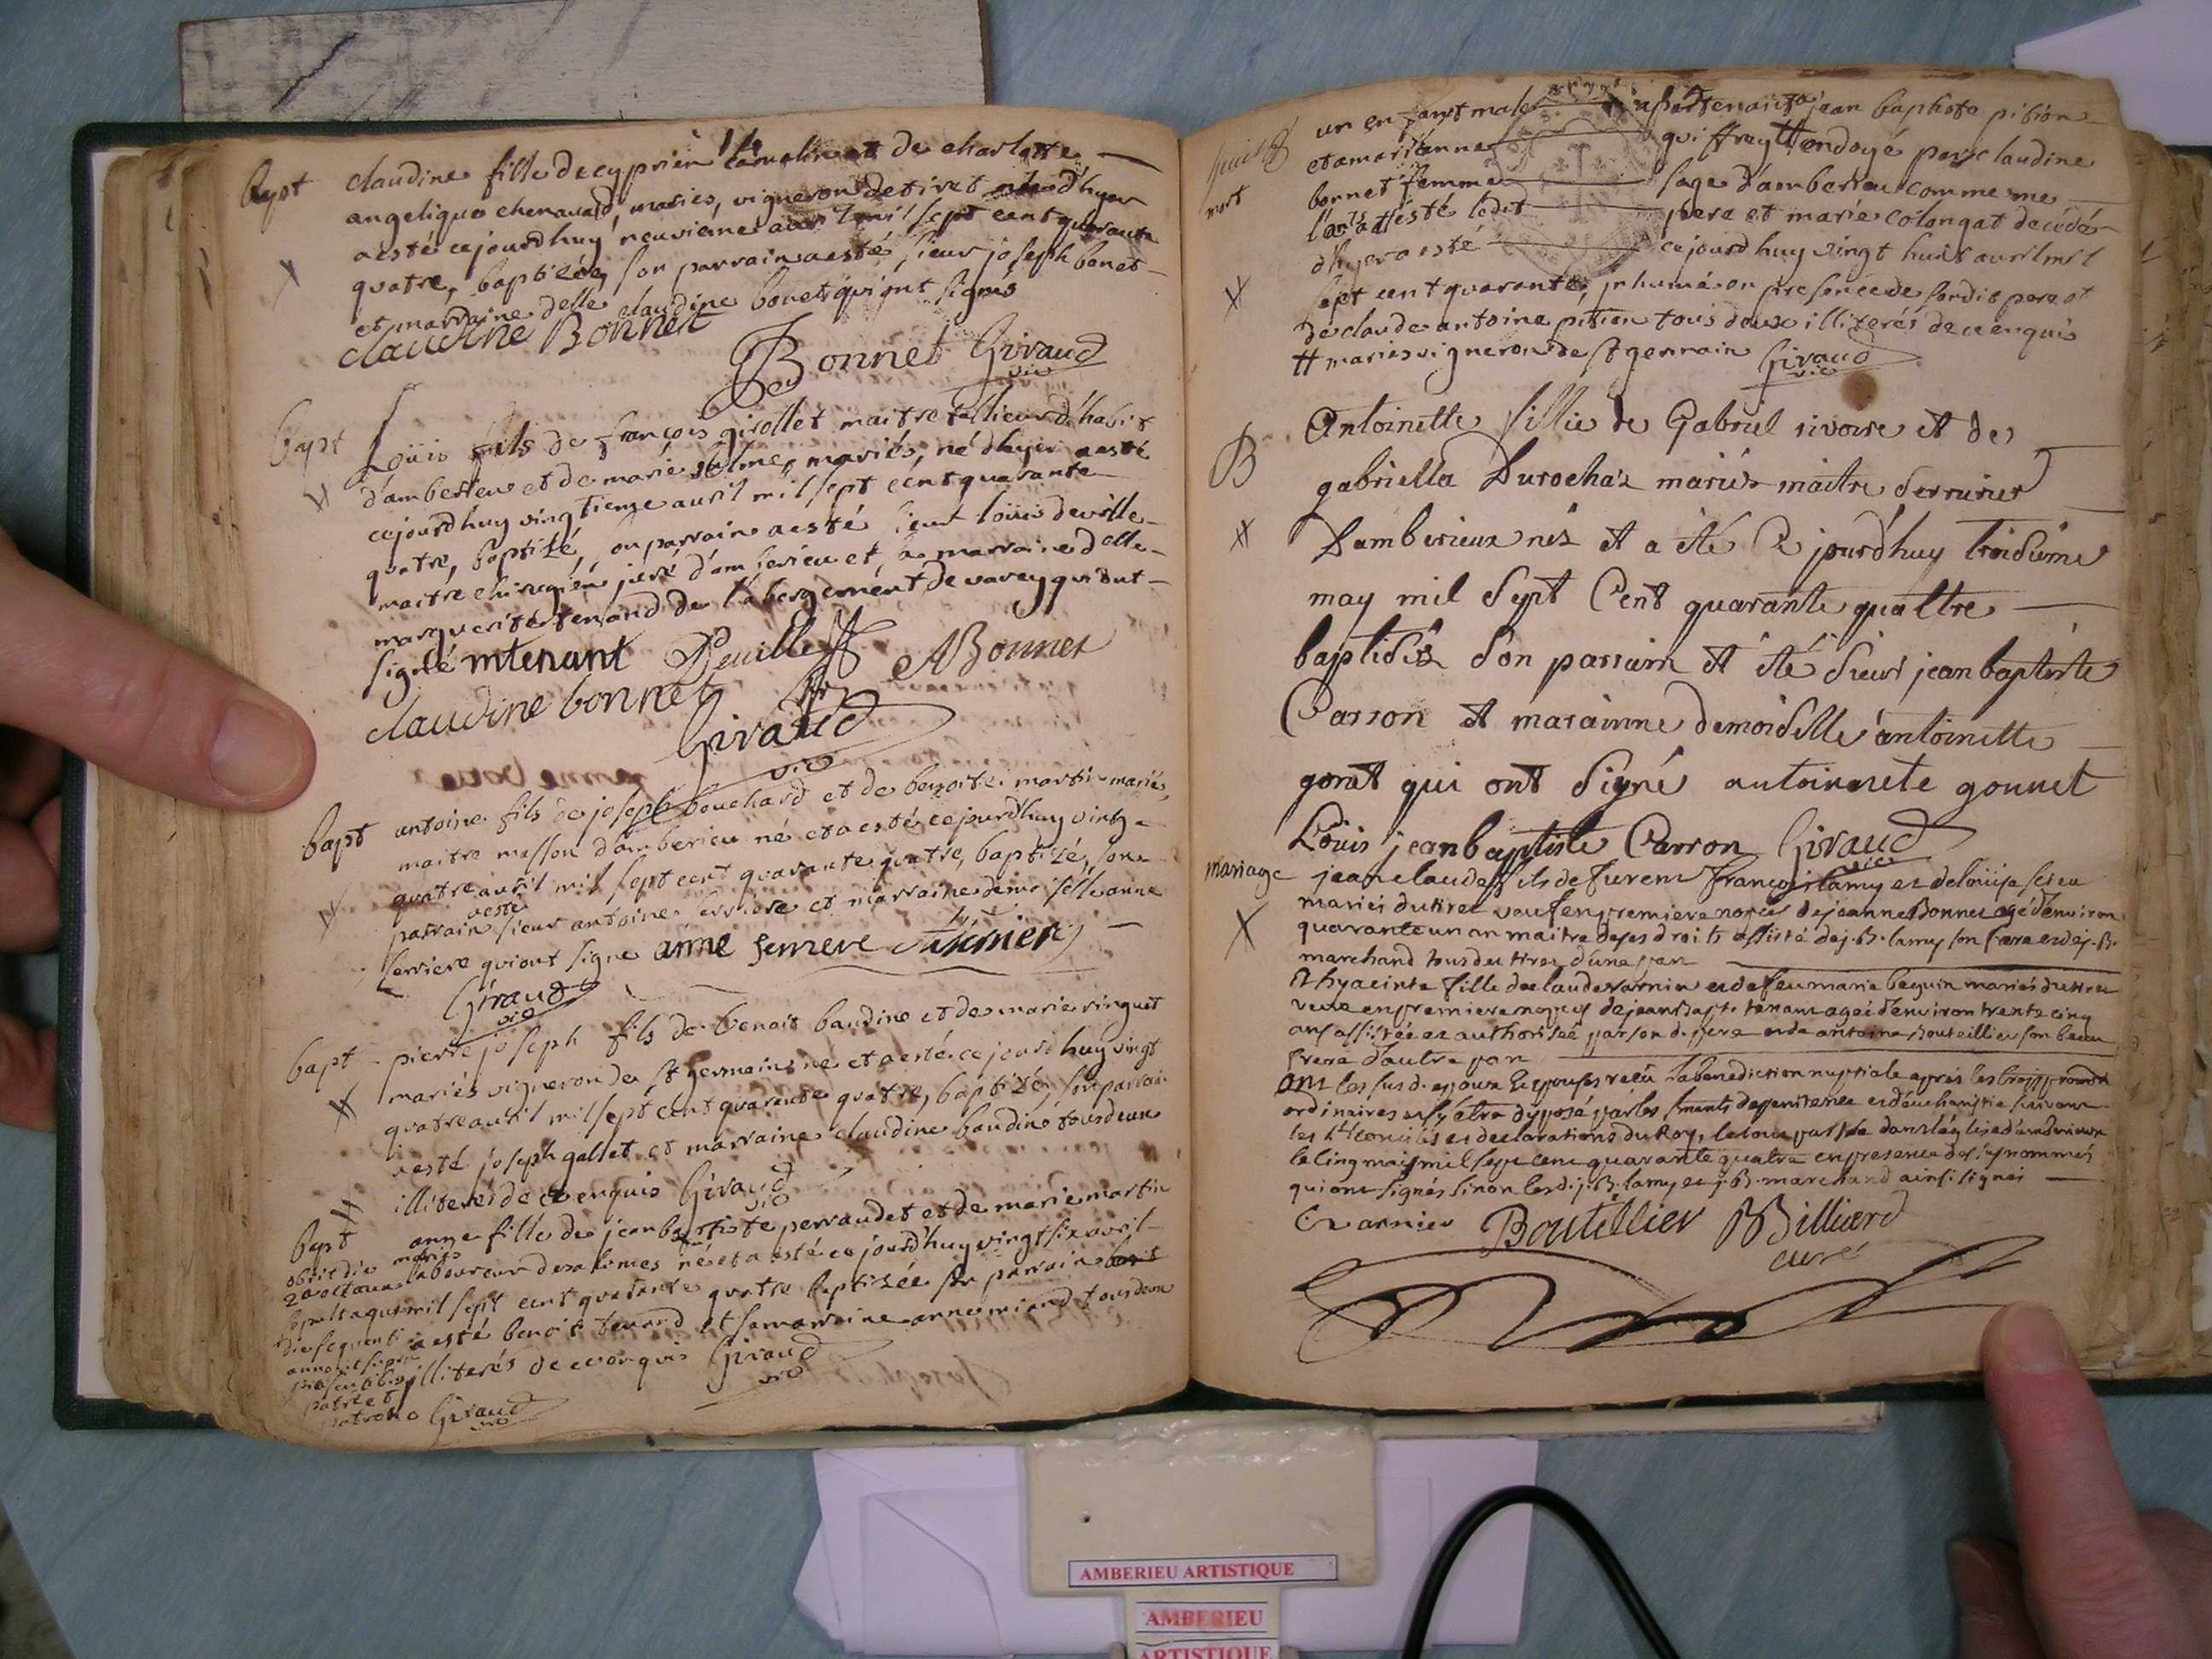 14
bapt claudine fille de cyprien et de charlotte
angelique chenavard, mariés, vigneron de tiret d'hyer
a esté cejourd'huy neuvieme avril mil sept cent quarante
quatre, baptizée, son parrain a esté sieur joseph bonet
et marraine delle claudine bonet qui ont signés
claudine Bonnet
Bonnet Giraud
vic
bapt Loüis fils de françois girollet maitre tallieur d'habit
d'amberieu et de marie mariés, né d'hyer a esté
cejourd'huy vingtieme avril mil sept cent quarante
quatre, baptizé, son parrain a esté sieur loüis deville
maitre chirurgien juré d'amberieu et la marraine delle
marguerite tenand de l'abergement de varey qui ont
signé mtenant Deville ABonnet
claudine bonnet
Giraud
vic
bapt antoine fils de joseph bouchard et de benoite martin mariés,
maitre masson d'amberieu né et a esté cejourd'huy vingt
quatre avril mil sept cent quarante quatre, baptizé, son
parrain a esté sieur antoine et marraine demoiselle anne
serviere qui ont signe anne serviere
Giraud
vic
bapt pierre joseph fils de benoit baudine et de marie vinguet
mariés vigneron de st germain né et a esté cejourd'huy vingt
quatre avril mil sept cent quarante quatre, baptizé, son parrain
a esté joseph gallet et marraine claudine baudine tous deux
illiterés de ce enquis Giraud
vic
bapt anne fille de jean baptiste perraudet et de marie martin
mariés laboureur des alimes née et a esté cejourd'huy vingt six avril
mil sept cent quarante quatre baptizée son parrain
a esté benoit tenand et sa marraine anne miand tous deux
illiterés de ce enquis Giraud
vic
obiit die
2a octava
sepulta que
die sequenti
anno ut supra
presentibus
patre et
patrono Giraud
vic
mort
un enfant male apartenant a jean baptiste pition
et a marianne qui ffrayt ondoyé par claudine
bonnet femme sage d'amberieu comme me
l'at attesté ledit pere et marie colongat decédé
d'hyer a esté cejourd'huy vingt huit avril mil
sept cent quarante, inhumé en presence de sondit pere et
de claude antoine pition tous deux illiterés de ce enquis
tt mariés vigneron de st germain Giraud
vic
B Antoinette fillie de Gabriel rivoire et de
gabriella Durochaz mariés maitre serrurier
D'amberieux née et a été Ce jourd'huy troisieme
may mil sept Cent quarante quattre
baptisée son parrain et été sieur jean baptiste
Carron et marainne demoiselle antoinette
gonet qui ont signé antoinnete gonnet
Loüis jean baptiste Carron Giraud
vic
mariage jean claude fils de furent François lamy et de loüise
mariés du tiret veuf en premiere noces de jeanne Bonnet agé d'environ
quarante un an maitre de ses droits assisté de j. B. lamy son frere et de j. B.
marchand tous du tiret d'une part
Et hyacinte fille de claude varnier et de feu marie beguin mariés du tiret
veuve en premiere noces de jean Bapt. tenant ageé d'environ trente cinq
ans assistée et authorisée par son d. pere et de antoine Bouteillier son beau
frere d'autre part
Ont les susd. epoux et epouse reçu la benediction nuptiale après les
ordinaires et s'y être disposé par les sments de penitence et d'eucharistie suivant
les sts conciles et declarations du Roy, le tout passé dans l'église d'amberieux
le cinq may mil sept cent quarante quatre en presence des sus nommés
qui ont signés sinon lesd. j. B. lamy et j. B. marchand ainsi signés
C varnier Boutellier Billiard
curé
AMBERIEU ARTISTIQUE
AMBERIEU
ARTISTIQUE